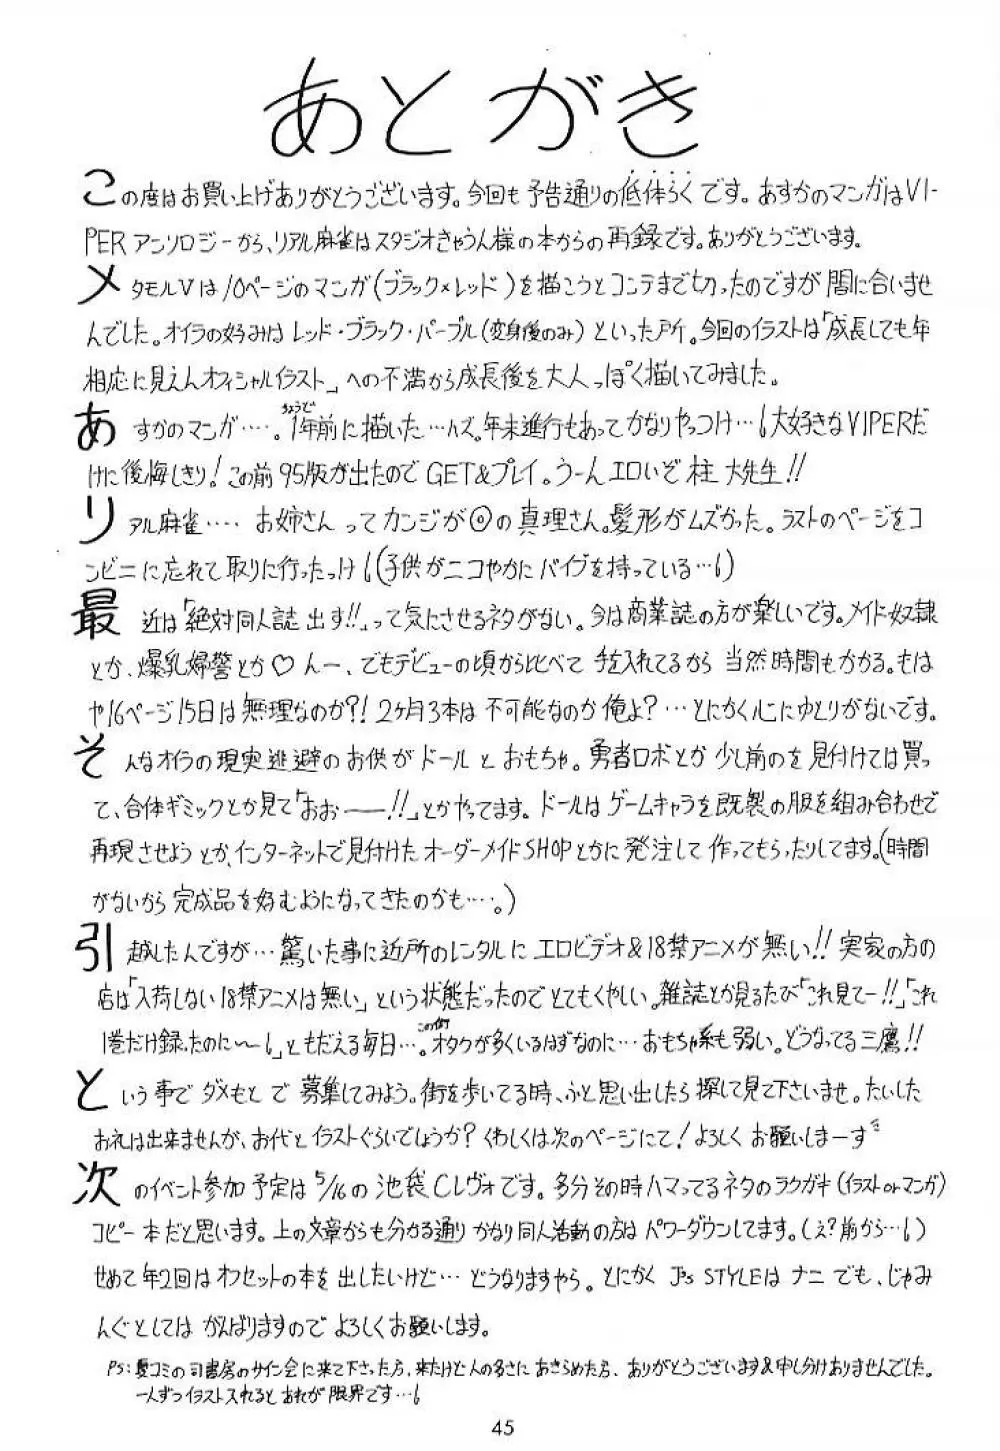 あとがき
この度はお買い上げありがとうございます。今回も予告通りの低体らくです。あすかのマンガはVI-
PERアンソロジーから、リアル麻雀はスタジオきゃうん様の本からの再録です。ありがとうございます。
メタモルVは10ページのマンガ(ブラック×レッド)を描こうとコンテまで切ったのですが間に合いませ
んでした。オイラの好みはレッド・ブラック・パープル(変身後のみ)といった所。今回のイラストは「成長しても年
相応に見えんオフィシャルイラスト」への不満から成長後を大人っぽく描いてみました。
あすかのマンガ‥‥。1年前に描いた…ハズ。年末進行もあってかなりやっつけ…大好きなVIPERだ
けに後悔しきり!この前95版が出たのでGET&プレイ。うーんエロいぞ柱大先生!!
リアル麻雀‥‥お姉さんってカンジが◎の真理さん。髪形がムズかった。ラストのページをコ
ンビニに忘れて取りに行ったっけ(子供がニコやかにバイブを持っている…)
最近は「絶対同人誌出す!!」って気にさせるネタがない。今は商業誌の方が楽しいです。メイド奴隷
とか、爆乳婦警とか♡んー、でもデビューの頃から比べて手を入れてるから当然時間もかかる。もは
や16ページ15日は無理なのか?!2ヶ月3本は不可能なのか俺よ?…とにかく心にゆとりがないです。
そんなオイラの現実逃避のお供がドールとおもちゃ。勇者ロボとか少し前のを見付けては買っ
て、合体ギミックとか見て「おお――!!」とかやってます。ドールはゲームキャラを既製の服を組み合わせで
再現させようとか、インターネットで見付けたオーダーメイドSHOPとかに発注して作ってもらったりしてます。(時間
がないから完成品を好むようになってきたのかも…。)
引越したんですが…驚いた事に近所のレンタルにエロビデオ&18禁アニメが無い!!実家の方の
店は「入荷しない18禁アニメは無い」という状態だったのでとてもくやしい。雑誌とか見るたび「これ見てー!!」「これ
1巻だけ録ったのに〜」ともだえる毎日…。この街オタクが多くいるはずなのに…おもちゃ系も弱い。どうなってる三鷹!!
という事でダメもとで募集してみよう。街を歩いてる時、ふと思い出したら探して見て下さいませ。たいした
お礼は出来ませんが、お代とイラストぐらいでしょうか?くわしくは次のページにて!よろしくお願いしまーす
次のイベント参加予定は5/16の池袋Cレヴォです。多分その時ハマってるネタのラクガキ(イラストorマンガ)
コピー本だと思います。上の文章からも分かる通りかなり同人活動の方はパワーダウンしてます。(え?前から…)
せめて年2回はオフセットの本を出したいけど…どうなりますやら。とにかくJ's STYLEはナニでも、じゃみ
んぐとしてはがんばりますのでよろしくお願いします。
PS:夏コミの司書房のサイン会に来て下さった方、来たけど人の多さにあきらめた方、ありがとうございます&申し分けありませんでした。
一人ずつイラスト入れるとあれが限界です…
45